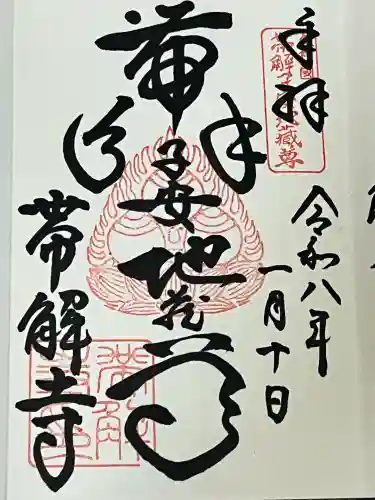 奉拝
帯解子安地蔵尊
令和八年
一月十日
帯解子安地蔵尊
帯解寺